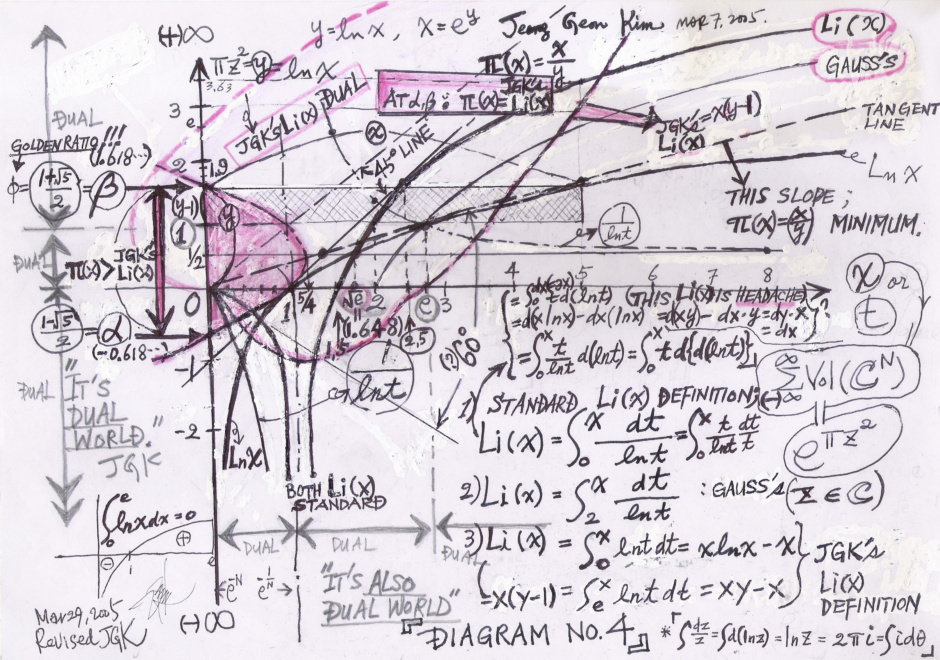 (+)∞
y=lnx, x=e^y
Jeong Geon Kim MAR 7, 2005.
Li(x)
GAUSS'S
πz²=y=lnx
3.63
π(x)=x/y
JGK's
AT α,β: π(x)=Li(x)
JGK's Li(x) DUAL
JGK's=x(y-1)
Li(x)
TANGENT
LINE
LnX
DUAL
GOLDEN RATIO !!!
(1.618...)
ϕ=(1+√5)/2=β
3
e
2
1.9
45° LINE
THIS SLOPE;
π(x)=(x/y) MINIMUM.
(y-1)
y
1
1/2
1/lnt
DUAL
π(x)>
JGK's
Li(x)
0
1
5/4
√e
2
e
3
4
5
6
7
8
x or
t
(1-√5)/2=α
(-0.618...)
(1.648)
1.5
2.5
1/lnt
60°
(THIS Li(x) IS HEADACHE)
=dxlnx-dx(lnx)=dxy-dx·y=dy·x?
=dx
=∫₀ˣ t/lnt d(lnt)=∫₀ˣ t d{d(lnt)}
∞
ΣVol(Cᴺ)
∞
||
e^πz²
-1
-2
DUAL
"IT'S
DUAL
WORLD."
JGK
1) STANDARD Li(x) DEFINITION;
Li(x)=∫₀ˣ dt/lnt=∫₀ˣ t dt/lnt t
LnX
BOTH Li(x)
STANDARD
2) Li(x)=∫₂ˣ dt/lnt :GAUSS'S (Z∈C)
∫₀ᵉ lnxdx=0
⊕
⊖
1
e
DUAL
DUAL
DUAL
3) Li(x)=∫₀ˣ lntdt=xlnx-x
=x(y-1)=∫ₑˣ lntdt=xy-x
JGK's
Li(x)
DEFINITION
e^-N
e^-1/N
"IT'S ALSO
DUAL WORLD"
Mar 29, 2005
Revised JGK
(-)∞
『DIAGRAM NO.4』
*「∫dz/z=∫d(lnz)=lnz=2πi=∫idθ」